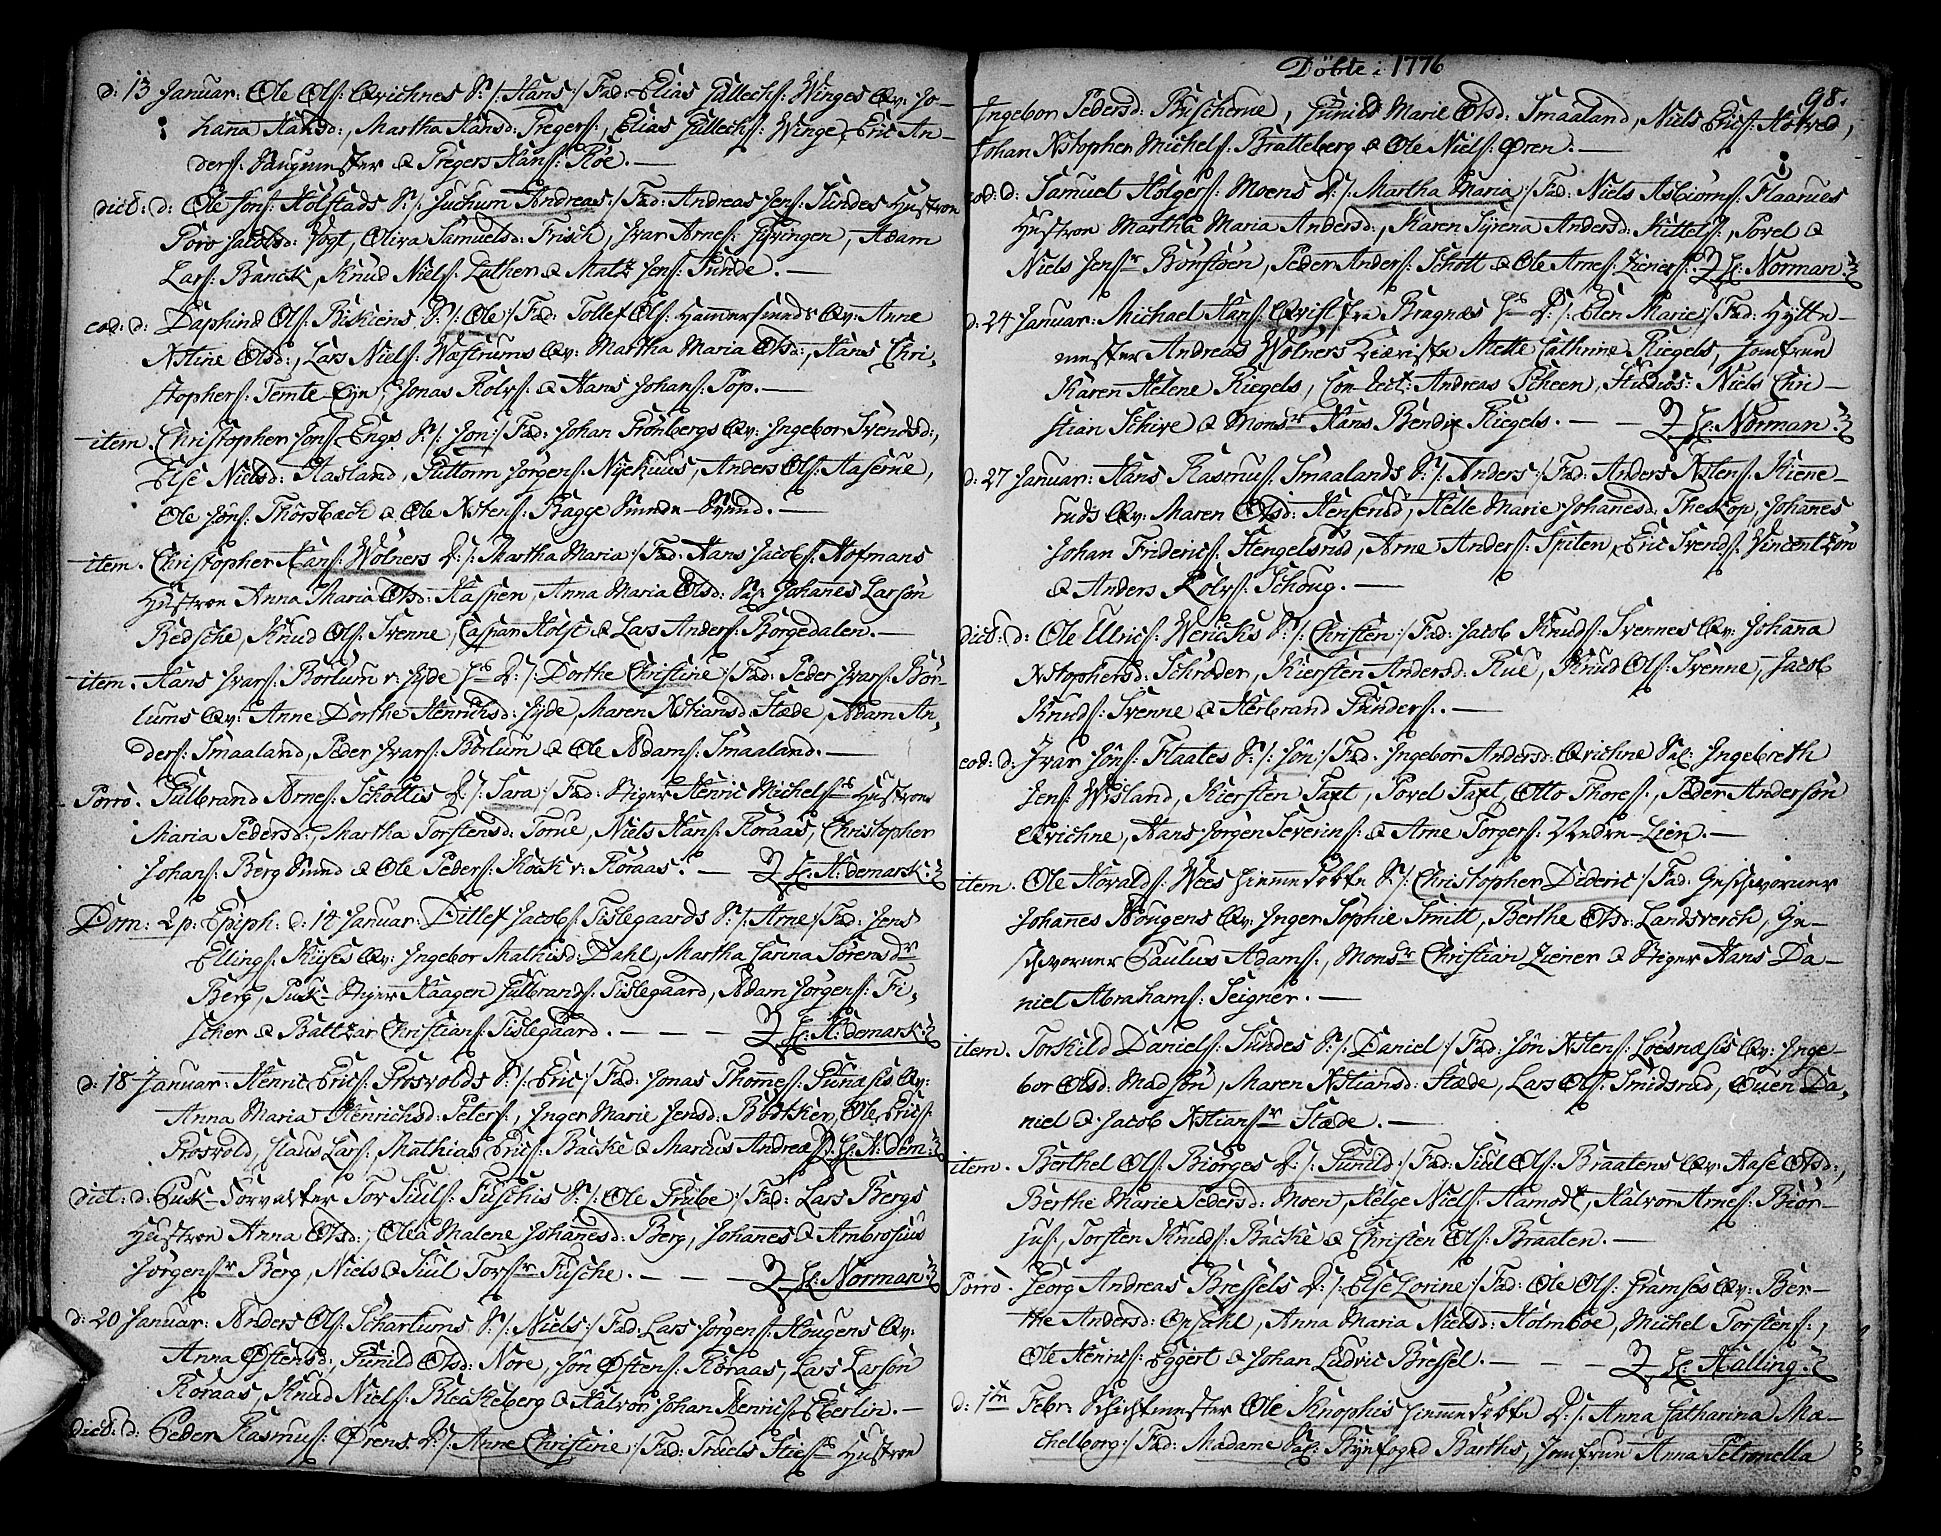 d: 13 Januar: Ole Ols: Qvichnes S: /: Hans :/ Fad: Elias Gullechs: Winges Qv: Jo-
hanna Hansd:, Martha Hansd: Tregers:, Elias Gullechs: Winge, Eric An-
ders: & Tregers Hans: Røe. —
dict: d: Ole Jons: Holstads S: /: Juchum Andreas :/ Fad: Andreas Jens: Sundes Hustroe
Poro Jacobsd: Vogt, Oliva Samuelsd: Frisch, Ivar Arnes: Gyvingen, Adam
Lars: Banck, Knud Niels: Luther & Matz Jens: Sunde. —
eod: d: Daphind Ols: S: /: Ole :/ Fad: Tollef Ols: Hammersunds Qv: Anne
Xstine Olsd:, Lars Niels: Wæstrums Qv: Martha Maria Olsd:, Hans Chri-
stophers: Temte-Eyn, Jonas Rolvs: & Hans Johans: Pop. —
item. Christopher Jons: Engs S: /: Jon :/ Fad: Johan Grönbergs Qv: Ingebor Svendsd:,
Else Nielsd: Hasland, Guttorm Jörgens: Nyehuus, Anders Ols: Aaserne,
Ole Jons: Thorsbach & Ole Xstens: Bagge -
item. Christopher Hans: Wölners D: /: Martha Maria :/ Fad: Hans Jacobs: Hofmans
Hustroe Anna Maria Olsd: Kaspen, Anna Maria Olsd: Sal: Johanes Larson
Bedsche, Knud Ols: Svenne, Caspar Holst & Lars Anders: Borgedalen. —
item. Hans Ivars: Borlum v: Gyde D: /: Dorthe Christine :/ Fad: Peder Ivars: Bor-
lums Qv: Anne Dorthe Henrichsd: Gyde, Maren Xstiansd: Stæde, Adam An-
ders: Smaaland, Peder Ivars: Borlum & Ole Adams: Smaaland. —
Porro. Gulbrand Arnes: Schottis D: /: Sara :/ Fad: Stiger Henric Michels: Hustroe
Maria Pedersd:, Martha Torstensd: Torue, Niels Hans: Koraas, Christopher
Johans: Berg & Ole Peders: Kock v: Koraas. — H: H: demark.
Dom: 2 p: Epiph: d: 14 Januar: Ditlef Jacobs: Tislegaards S: /: Arne :/ Fad: Jens
Ellings: Kuses Qv: Ingebor Mathisd: Dahl, Martha Carina Sörensd:
Berg, Puk-Stiger Haagen Gulbrands: Tislegaard, Adam Jörgens: Fi-
scher & Baltzar Christians: Tislegaard. — — — H: H: demark.
d: 18 Januar: Henric Erics: Prosvolds S: /: Eric :/ Fad: Jonas Thomes: Qv:
Anna Maria Henrichsd: Peters:, Inger Marie Jensd: Bödtker, Ole Erics:
Prosvold, Claus Lars:, Mathias Erics: Backe & Marcus Andreæs: H: H: dem:
dict: d: Puk-Forvalter Tor Siuls: Fuschis S: /: Ole Grübe :/ Fad: Lars Bergs
Hustroe Anna Olsd:, Olea Malene Johanesd: Berg, Johanes & Ambrosius
Jörgens: Berg, Niels & Siul Tors: Fusche. — — — H: Norman
d: 20 Januar: Anders Ols: Schartums S: /: Niels :/ Fad: Lars Jörgens: Hougens Qv:
Anna Östensd:, Gunild Olsd: Nore, Jön Östens: Koraas, Lars Larson
Koraas, Knud Niels: Bleakeberg & Halvor Johan Henrics: Eberlin. —
dict: d: Peder Rasmus: Örens D: /: Anne Christine :/ Fad: Truels Hustroe
Döbte i 1776
98.
Ingebor Pedersd: Bischerue, Gunild Marie Olsd: Smaaland, Niels Erics: Holved,
Johan Xstopher Michels: Bratteberg & Ole Niels: Ören. —
eod: d: Samuel Holgers: Moens D: /: Martha Maria :/ Fad: Niels Asbiorns: Flaarues
Hustroe Martha Maria Andersd:, Karen Syrena Andersd: Kittels:, Povel &
Niels Jens: Borstöen, Peder Anders: Schott & Ole Arnes: Zieners: H: Norman
d: 24 Januar: Michael Hans: Qvist fra Bragnæs D: /: Elen Marie :/ Fad: Hytte-
mester Andreas Wölners Kiæreste Mette Cathrine Riegels, Jomfrue
Karen Helene Riegels, Con-Rect: Andreas Scheen, Studios: Niels Chri-
stian Schive & Mons: Hans Bendix Riegels. — — H: Norman
d: 27 Januar: Hans Rasmus: Smaalands S: /: Anders :/ Fad: Anders Xstens: Kiene-
ruds Qv: Maren Olsd: Hensrud, Helle Marie Johanesd: Theskop, Johanes
Johan Friderics: Stengelsrud, Arne Anders: Spiten, Eric Svends: Vincent-Lön
& Anders Rolvs: Schoug. —
dict: d: Ole Ulrics: Wericks S: /: Christen :/ Fad: Jacob Knuds: Svennes Qv: Johanna
Xstophersd: Schröder, Kiersten Andersd: Rue, Knud Ols: Svenne, Jacob
Knuds: Svenne & Herbrand Gunders:. —
eod: d: Ivar Jöns: Flaates S: /: Jön :/ Fad: Ingeborr Andersd: Qvichne Sal: Ingebreth
Jens: Wisland, Kiersten Taxt, Povel Taxt, Otto Thores:, Peder Anderson
Qvichne, Hans Jörgen Severins: & Arne Torgers: -Lien. —
item. Ole Hovalds: Wees hiemmedöbte S: /: Christopher Dideric :/ Fad: Geschworner
Johanes Hougens Qv: Inger Sophie Smitt, Berthe Olsd: Landsverch, Ge-
schworner Paulus Adams:, Mons: Christian Ziener & Stiger Hans Da-
niel Abrahams: Seigner. —
item. Torskild Daniels: Sundes S: /: Daniel :/ Fad: Jön Xstens: Loesnæsis Qv: Inge-
bor Olsd: Madsön, Maren Xstiansd: Stæde, Lars Ols: Smidsrud, Ouen Da-
niel & Jacob Xstians: Stæde. —
item. Berthel Ols: Biorges D: /: Gunild :/ Fad: Siul Ols: Braatens Qv: Aase Olsd:,
Berthe Marie Pedersd: Moen, Helge Niels: Hamodt, Halvor Arnes: Biör-
Jus:, Torsten Knuds: Backe & Christen Ols: Braaten. —
Porro. Georg Andreas Bressels D: /: Else Lorine :/ Fad: Ole Ols: Gramsis Qv: Ber-
the Andersd: Opsahl, Anna Maria Nielsd: Holmboe, Michel Torstens:,
Ole Henrics: Eggert & Johan Ludvic Bressel. — — — H: Halling
d: 1te Febr: Schichtmester Ole Knophis hiemmedöbte D: /: Anna Catharina Ma-
chelborg :/ Fad: Madame Sal: Bynfoged Barths, Jomfrue Anna Petronella